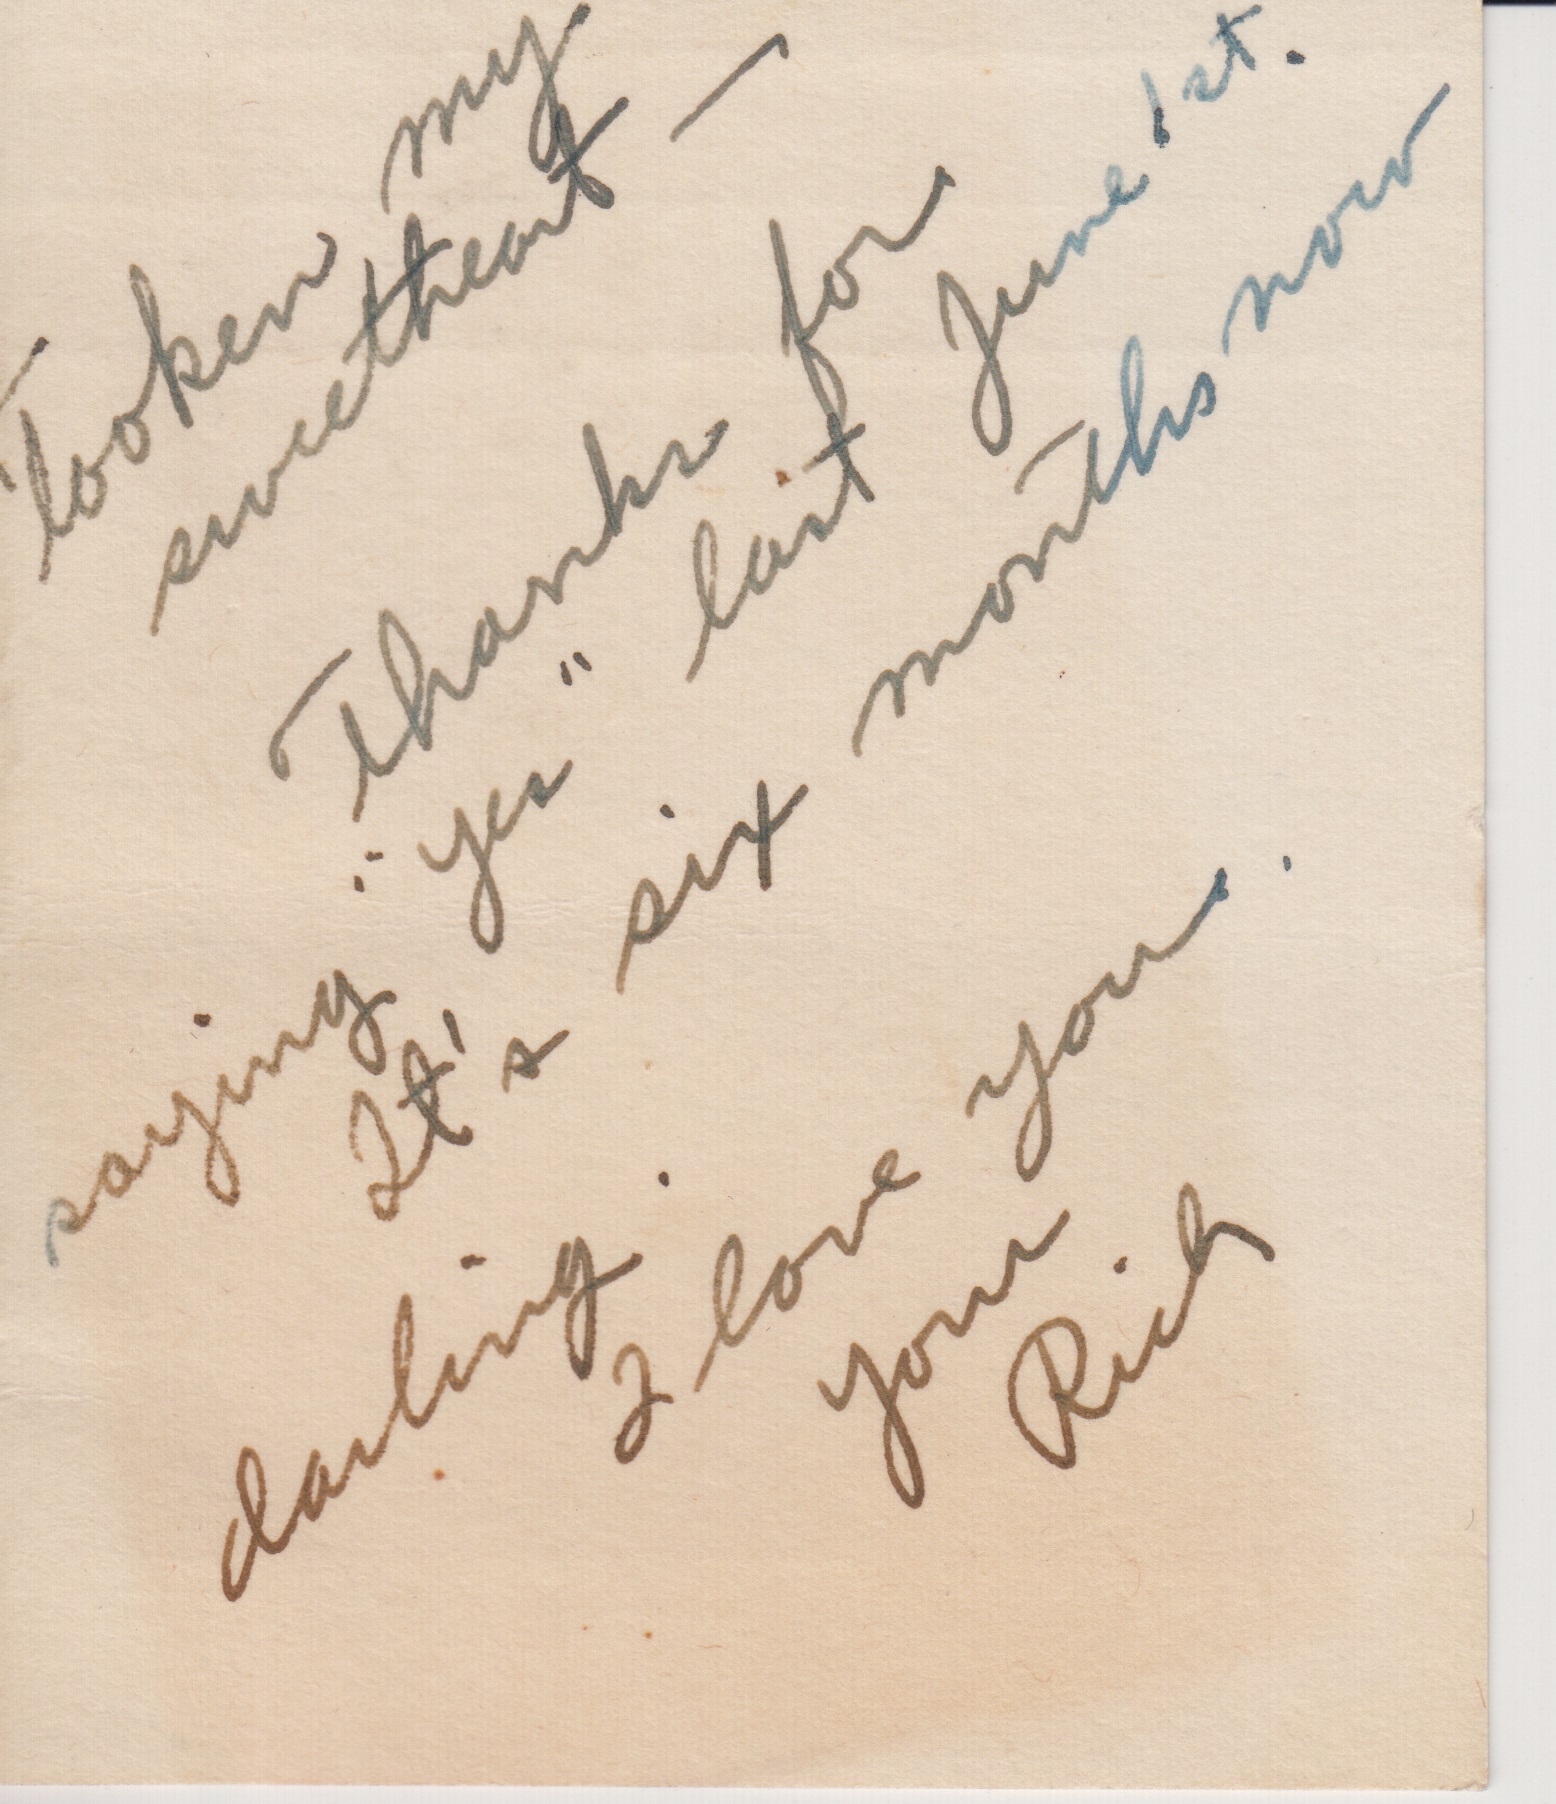 Tooken my
sweetheart —
Thanks for
saying "yes" last June 1st.
It's six months now
darling.
I love you.
your
Rich